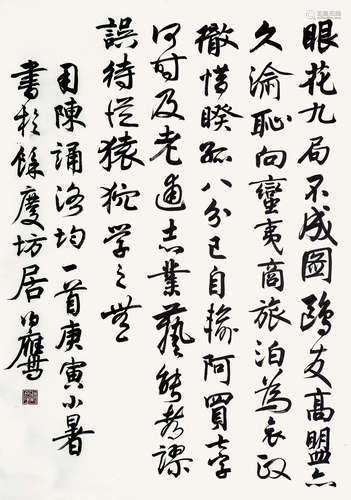 眼花九局不成圖鷗友高盟亦
久渝恥向蠻夷商旅泊為衣政
徹惜睽孤八分已自輸阿買
何時及老逋志業藝能考謬
誤待從猿狖学之
用陳誦洛均一首庚寅小暑
書於餘慶坊居